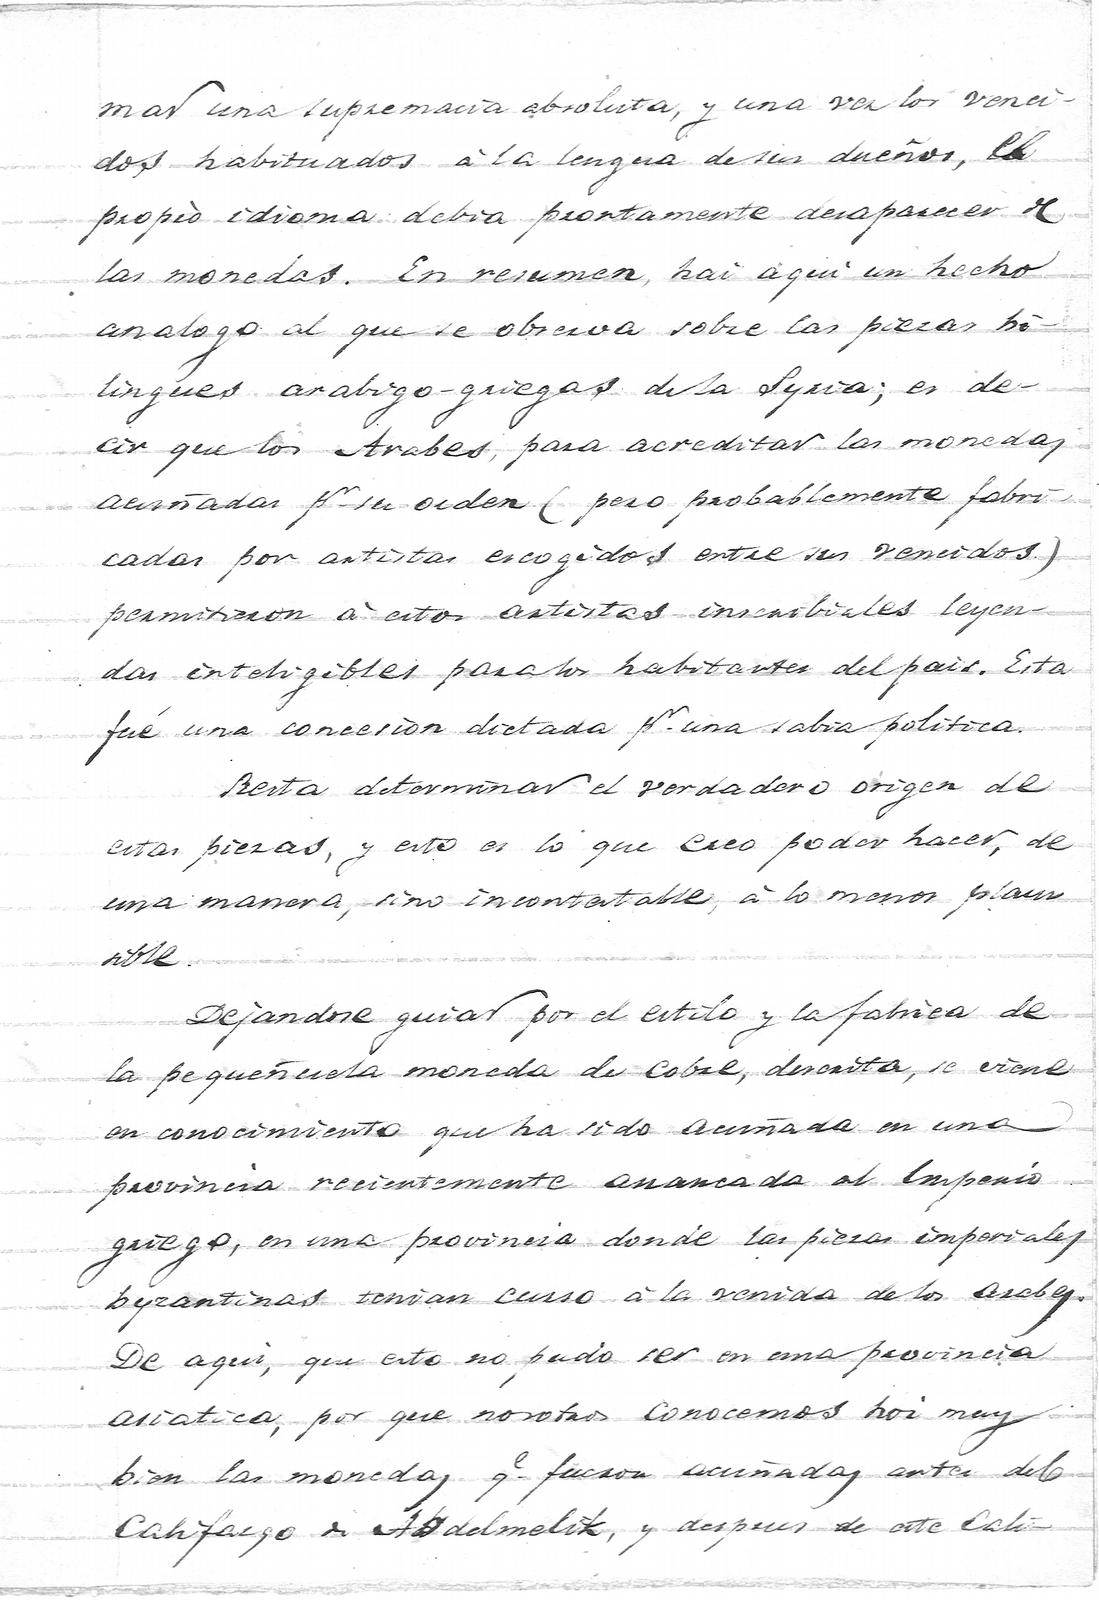 mar una supremacia absoluta, y una vez los venci-
dos habituados à la lengua de sus dueños, el
propio idioma debia prontamente desaparecer de
las monedas. En resumen, hai aqui un hecho
analogo al que se observa sobre las piezas bi-
lingües arabigo-griegas de la Syria; es de-
cir que los Arabes, para acreditar las monedas
acuñadas pr. su orden (pero probablemente fabri-
cadas por artistas escogidos entre sus vencidos)
permitieron à estos artistas inscribirles leyen-
das inteligibles para los habitantes del pais. Esta
fué una concesion dictada pr. una sabia politica.
Resta determinar el verdadero origen de
estas piezas, y esto es lo que creo poder hacer, de
una manera, sino incontestable, à lo menos plau
sible.
Dejandose guiar por el estilo y la fabrica de
la pequeñuela moneda de cobre, descrita, se viene
en conocimiento que ha sido acuñada en una
provincia recientemente arrancada al Imperio
griego, en una provincia donde las piezas imperiales
byzantinas tenian curso à la venida de los Arabes.
De aqui, que esto no pudo ser en una provincia
asiatica, por que nosotros conocemos hoi muy
bien las monedas qe. fueron acuñadas antes del
Califazgo de Abdelmelik, y despues de este Cali-